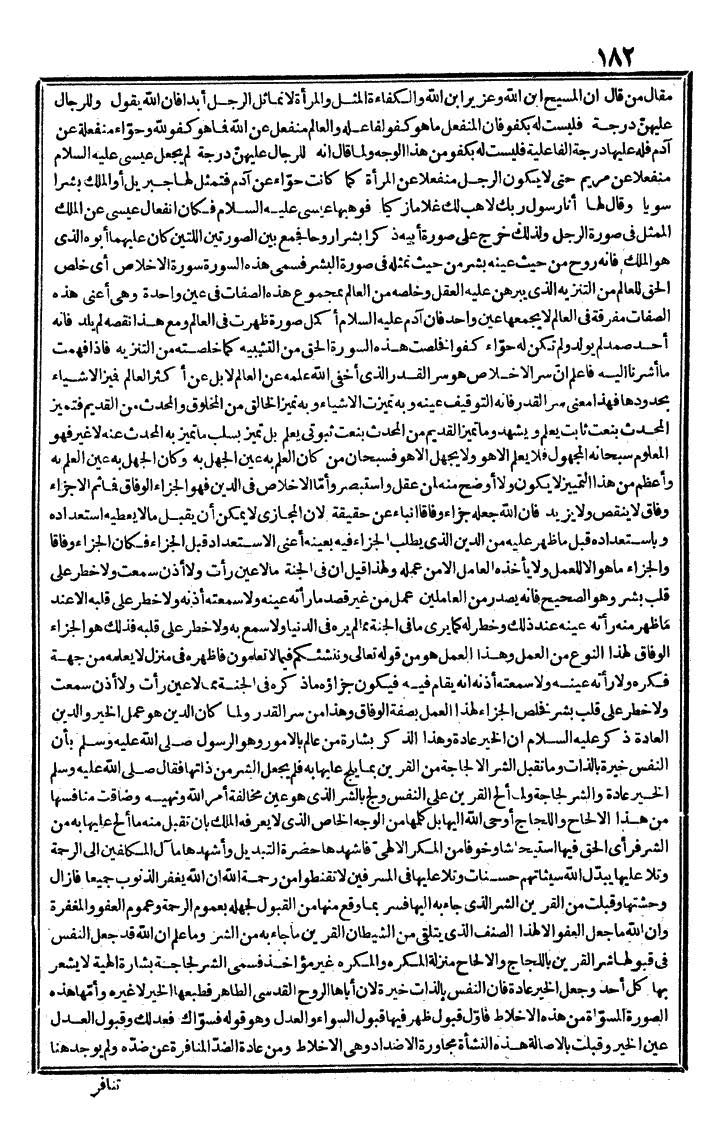 ١٨٢
مقال من قال ان المسيح ابن الله وعزير ابن الله والكفاءة المثل والمرأة لا تماثل الرجل أبدا فان الله يقول وللرجال
عليهنّ درجة فليست له بكفو فان المنفعل ما هو كفو لفاعله والعالم منفعل عن الله فما هو كفو لله وحوّاء منفعلة عن
آدم فله عليها درجة الفاعلية فليست له بكفو من هذا الوجه ولما قال انه للرجال عليهنّ درجة لم يجعل عيسى عليه السلام
منفعلا عن مريم حتى لا يكون الرجل منفعلا عن المرأة كما كانت حوّاء عن آدم فتمثل لها جبريل أو الملك بشرا
سويا وقال لها أنا رسول ربك لاهب لك غلاما زكيا فوهبها عيسى عليه السلام فكان انفعال عيسى عن الملك
الممثل فى صورة الرجل ولذلك خرج على صورة أبيه ذكرا بشرا روحا فجمع بين الصورتين اللتين كان عليهما أبوه الذى
هو الملك فانه روح من حيث عينه بشر من حيث تمثله فى صورة البشر فسمى هذه السورة سورة الاخلاص أى خلص
الحق للعالم من التنزيه الذى يبرهن عليه العقل وخلصه من العالم بمجموع هذه الصفات فى عين واحدة وهى أعنى هذه
الصفات مفرقة فى العالم لا يجمعها عين واحد فان آدم عليه السلام أكمل صورة ظهرت فى العالم ومع هذا نقصه لم يلد فانه
أحد صمد لم يولد ولم تكن له حوّاء كفوا فخلصت هذه السورة الحق من التشبيه كما خلصته من التنزيه فاذا فهمت
ما أشرنا اليه فاعلم انّ سرّ الاخلاص هو سر القدر الذى أخفى الله علمه عن العالم لا بل عن أكثر العالم فيز الاشياء
بحدودها فهذا معنى سر القدر فانه التوقيف عينه وبه تميزت الاشياء وبه تميز الخالق من المخلوق والمحدث من القديم فتميز
المحدث بنعت ثابت يعلم ويشهد وما تميز القديم من المحدث بنعت ثبوتى يعلم بل تميز بسلب ما تميز به المحدث عنه لا غير فهو
المعلوم سبحانه المجهول فلا يعلم الا هو ولا يجهل الا هو فسبحان من كان العلم به عين الجهل به وكان الجهل به عين العلم به
وأعظم من هذا التمييز لا يكون ولا أوضح منه لمن عقل واستبصر وأمّا الاخلاص فى الدين فهو الجزاء الوفاق فما ثم الاجزاء
وفاق لا ينقص ولا يزيد فان الله جعله جزاء وفاقا انباء عن حقيقة لان المجازى لا يمكن أن يقبل ما لا يعطيه استعداده
وباستعداده قبل ما ظهر عليه من الدين الذى يطلب الجزاء فيه بعينه أعنى الاستعداد قبل الجزاء فكان الجزاء وفاقا
والجزاء ما هو الا للعمل ولا يأخذه العامل الا من عمله ولهذا قيل ان فى الجنة ما لا عين رأت ولا أذن سمعت ولا خطر على
قلب بشر وهو الصحيح فانه يصدر من العاملين عمل من غير قصد ما رأته عينه ولا سمعته أذنه ولا خطر على قلبه الا عند
ما ظهر منه رأته عينه عند ذلك وخطر له كما يرى ما فى الجنة مما لم يره فى الدنيا ولا سمع به ولا خطر على قلبه فذلك هو الجزاء
الوفاق لهذا النوع من العمل وهذا العمل هو من قوله تعالى وننشئكم فيما لا تعلمون فاظهره فى منزل لا يعلمه من جهة
فكره ولا رأته عينه ولا سمعته أذنه انه يقام فيه فيكون جزاؤه ما ذكره فى الجنة مما لا عين رأت ولا أذن سمعت
ولا خطر على قلب بشر فخلص الجزاء لهذا العمل بصفة الوفاق وهذا من سر القدر ولما كان الدين هو عمل الخير والدين
العادة ذكر عليه السلام ان الخير عادة وهذا الذكر بشارة من عالم بالامور وهو الرسول صلى الله عليه وسلم بأن
النفس خيرة بالذات وما تقبل الشر الا لجاجة من القرين بما يلج عليها به فلم يجعل الشر من ذاتها فقال صلى الله عليه وسلم
الخير عادة والشر لجاجة ولما ألح القرين على النفس ولج بالشر الذى هو عين مخالفة أمر الله ونهيه وضاقت منافسها
من هذا الالحاح واللجاج أوحى الله اليها بل كلمها من الوجه الخاص الذى لا يعرفه الملك بان تقبل منه ما ألح عليها به من
الشر فرأى الحق فيها استيحاشا وخوفا من المكر الالهىّ فاشهدها حضرة التبديل وأشهدها مآل المكلفين الى الرحمة
وتلا عليها يبدّل الله سيئاتهم حسنات وتلا عليها فى المسرفين لا تقنطوا من رحمة الله ان الله يغفر الذنوب جميعا فازال
وحشتها وقبلت من القرين الشر الذى جاء به اليها فسر بما وقع منها من القبول لجهله بعموم الرحمة وعموم العفو والمغفرة
وان الله ما جعل العفو الا لهذا الصنف الذى يتلقى من الشيطان القرين ما جاء به من الشر وما علم ان الله قد جعل النفس
فى قبولها شر القرين باللجاج والالحاح منزلة المكره والمكره غير مؤاخذ فسمى الشر لجاجة بشارة الهية لا يشعر
بها كل أحد وجعل الخير عادة فان النفس بالذات خيرة لان أباها الروح القدسى الطاهر فطبعها الخير لا غيره وأمّها هذه
الصورة المسوّاة من هذه الاخلاط فاوّل قبول ظهر فيها قبول السواء والعدل وهو قوله فسوّاك فعدلك وقبول العدل
عين الخير وقبلت بالاصالة هذه النشأة مجاورة الاضداد وهى الاخلاط ومن عادة الضدّ المنافرة عن ضدّه ولم يوجد هنا
تنافر